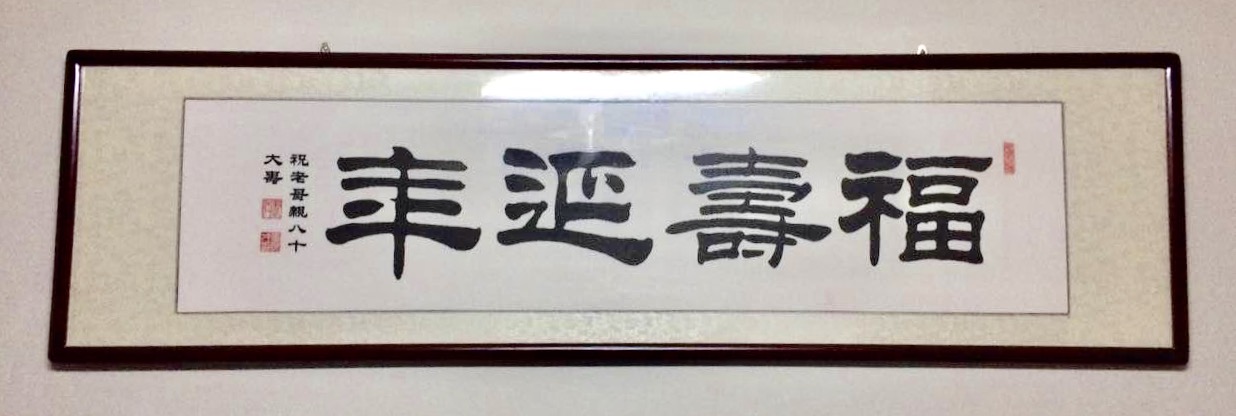 福壽延年
祝老哥親八十
大壽